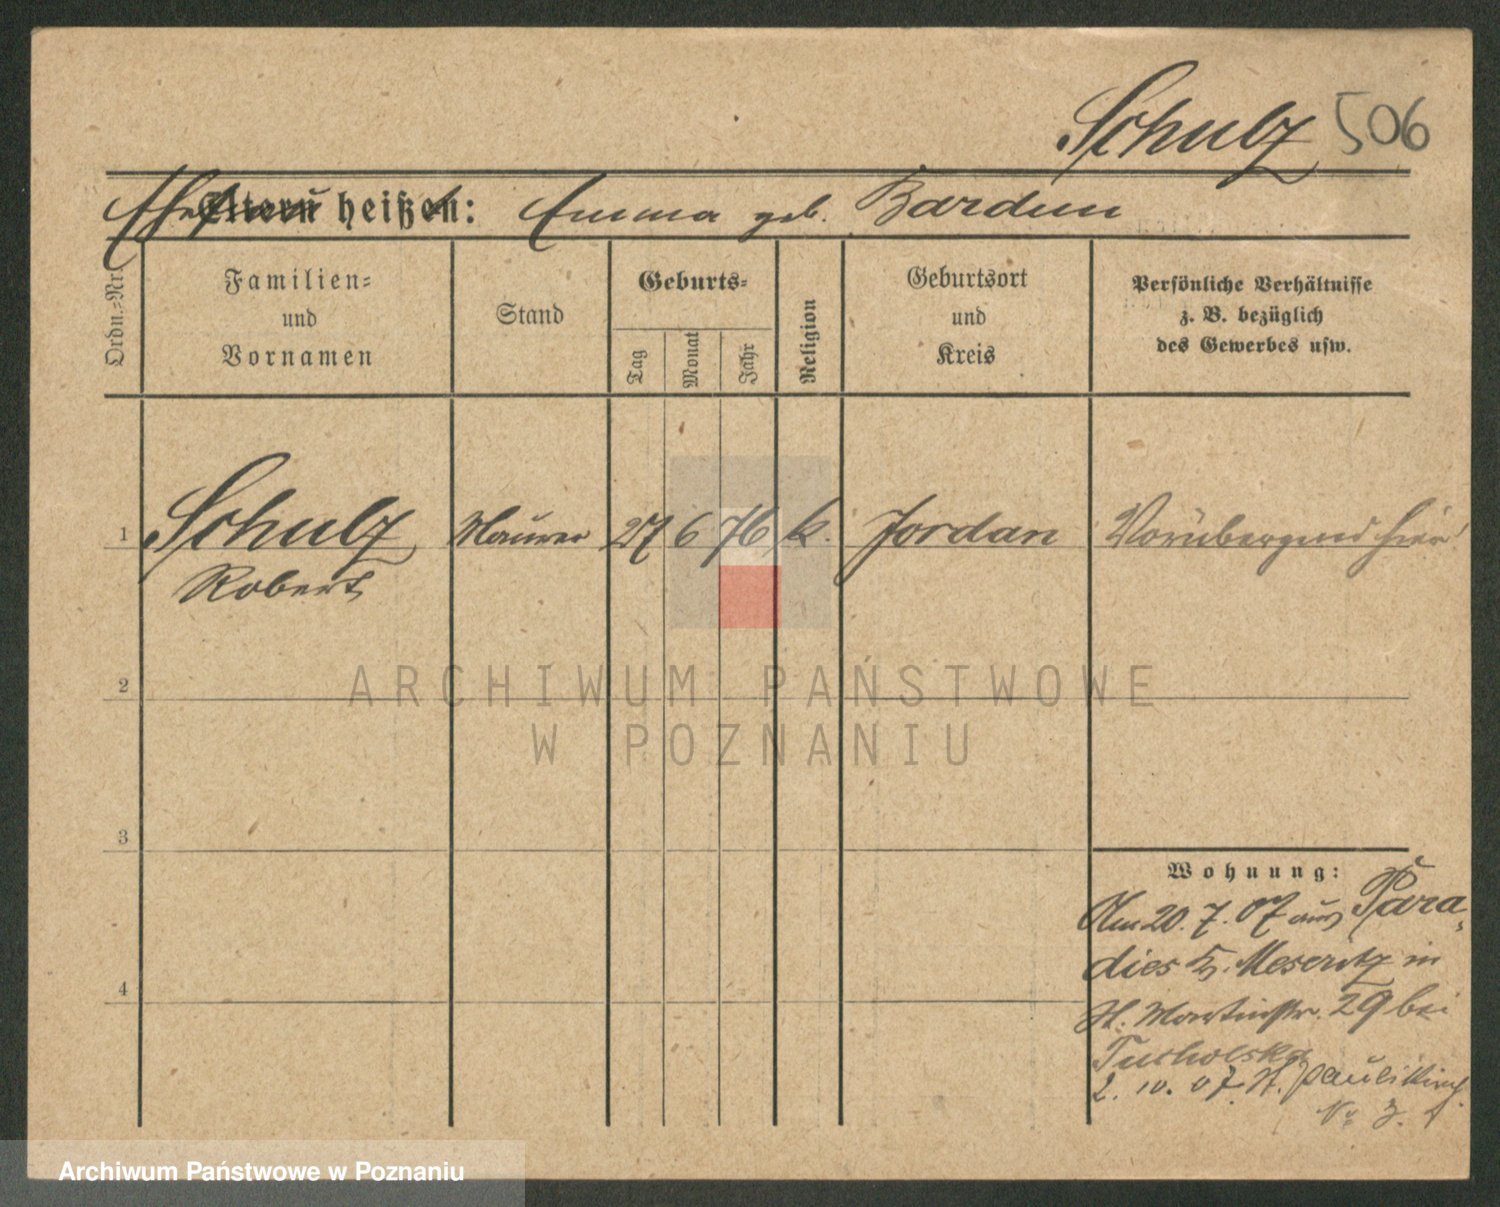 Schulz 506
Ehefrau heißt: Emma geb. Bardun
Ordn.-Nr.
Familien-
und
Vornamen
Stand
Geburts-
Tag
Monat
Jahr
Religion
Geburtsort
und
Kreis
Persönliche Verhältnisse
z. B. bezüglich
des Gewerbes usw.
1 Schulz Maurer 27 6 76 k. Jordan Vorübergend hier!
Robert
2
ARCHIWUM PAŃSTWOWE
W POZNANIU
3
Wohnung:
Am 20. 7. 07 aus Para-
dies K. Meseritz in
St. Martinstr. 29 bei
Tucholska
2. 10. 07. St. Paulikirch
No 3.
4
Archiwum Państwowe w Poznaniu